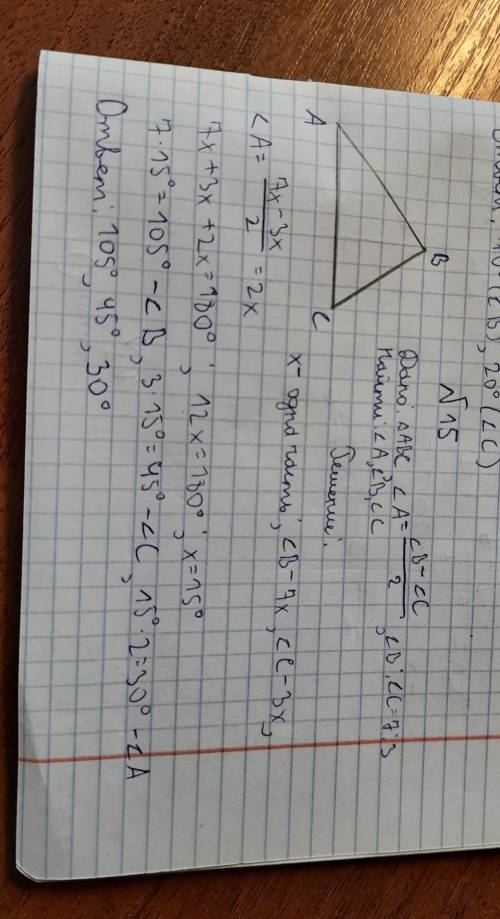 20° (∠C)
№15
A
B
C
Дано: △ABC, ∠A = (∠B - ∠C)/2, ∠B:∠C = 7:3
Найти: ∠A, ∠B, ∠C
Решение:
x - одна часть; ∠B - 7x, ∠C - 3x,
∠A = (7x - 3x)/2 = 2x
7x + 3x + 2x = 180°; 12x = 180°; x = 15°
7·15° = 105° - ∠B, 3·15° = 45° - ∠C, 15°·2 = 30° - ∠A
Ответ: 105°, 45°, 30°